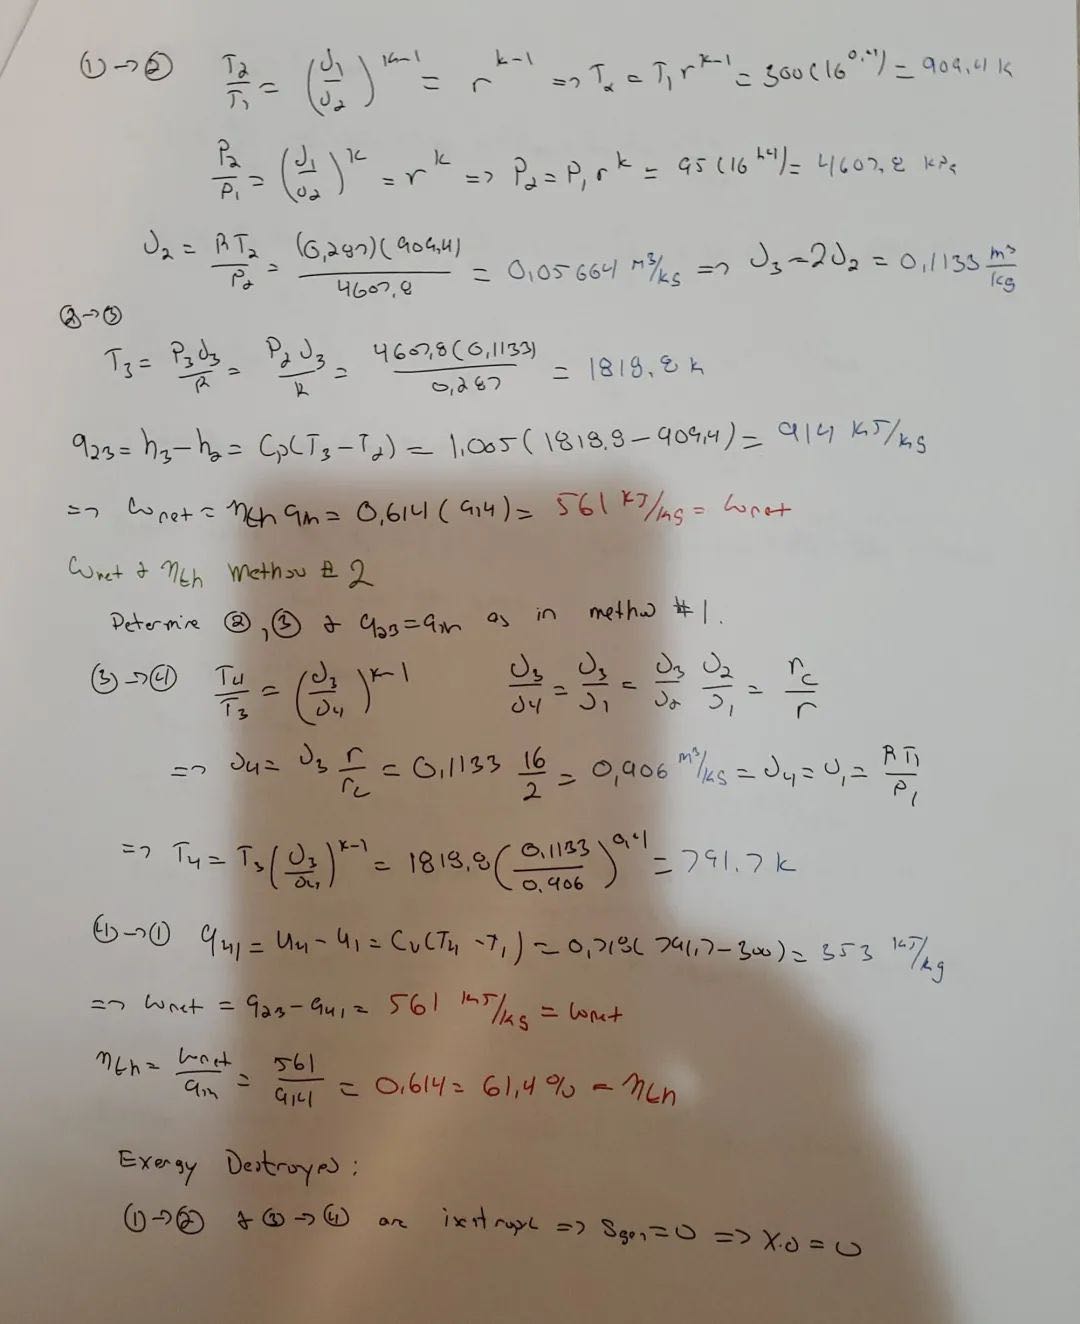 ①→② T₂/T₁ = (υ₁/υ₂)^(k-1) = r^(k-1) => T₂ = T₁ r^(k-1) = 300(16^0.4) = 909,4 k
P₂/P₁ = (υ₁/υ₂)^k = r^k => P₂ = P₁ r^k = 95(16^1.4) = 4607,8 kPa
υ₂ = RT₂/P₂ = (0,287)(909,4)/4607,8 = 0,05664 m³/kg => υ₃ = 2υ₂ = 0,1133 m³/kg
②→③
T₃ = P₃υ₃/R = P₂υ₃/R = 4607,8(0,1133)/0,287 = 1818,8 k
q₂₃ = h₃-h₂ = Cp(T₃-T₂) = 1,005(1818,8-909,4) = 914 kJ/kg
=> ωnet = ηth qin = 0,614(914) = 561 kJ/kg = ωnet
ωnet & ηth Method # 2
Determine ②,③ & q₂₃=qin as in method #1.
③→④ T₄/T₃ = (υ₃/υ₄)^(k-1) υ₃/υ₄ = υ₃/υ₁ = υ₃/υ₂ υ₂/υ₁ = rc/r
=> υ₄ = υ₃ r/rc = 0,1133 16/2 = 0,906 m³/kg = υ₄ = υ₁ = RT₁/P₁
=> T₄ = T₃(υ₃/υ₄)^(k-1) = 1818,8(0,1133/0,906)^0,4 = 791,7 k
④→① q₄₁ = u₄-u₁ = Cv(T₄-T₁) = 0,718(791,7-300) = 353 kJ/kg
=> ωnet = q₂₃-q₄₁ = 561 kJ/kg = ωnet
ηth = ωnet/qin = 561/914 = 0,614 = 61,4% = ηth
Exergy Destroyed:
①→② & ③→④ are isentropic => Sgen=0 => X.D = 0